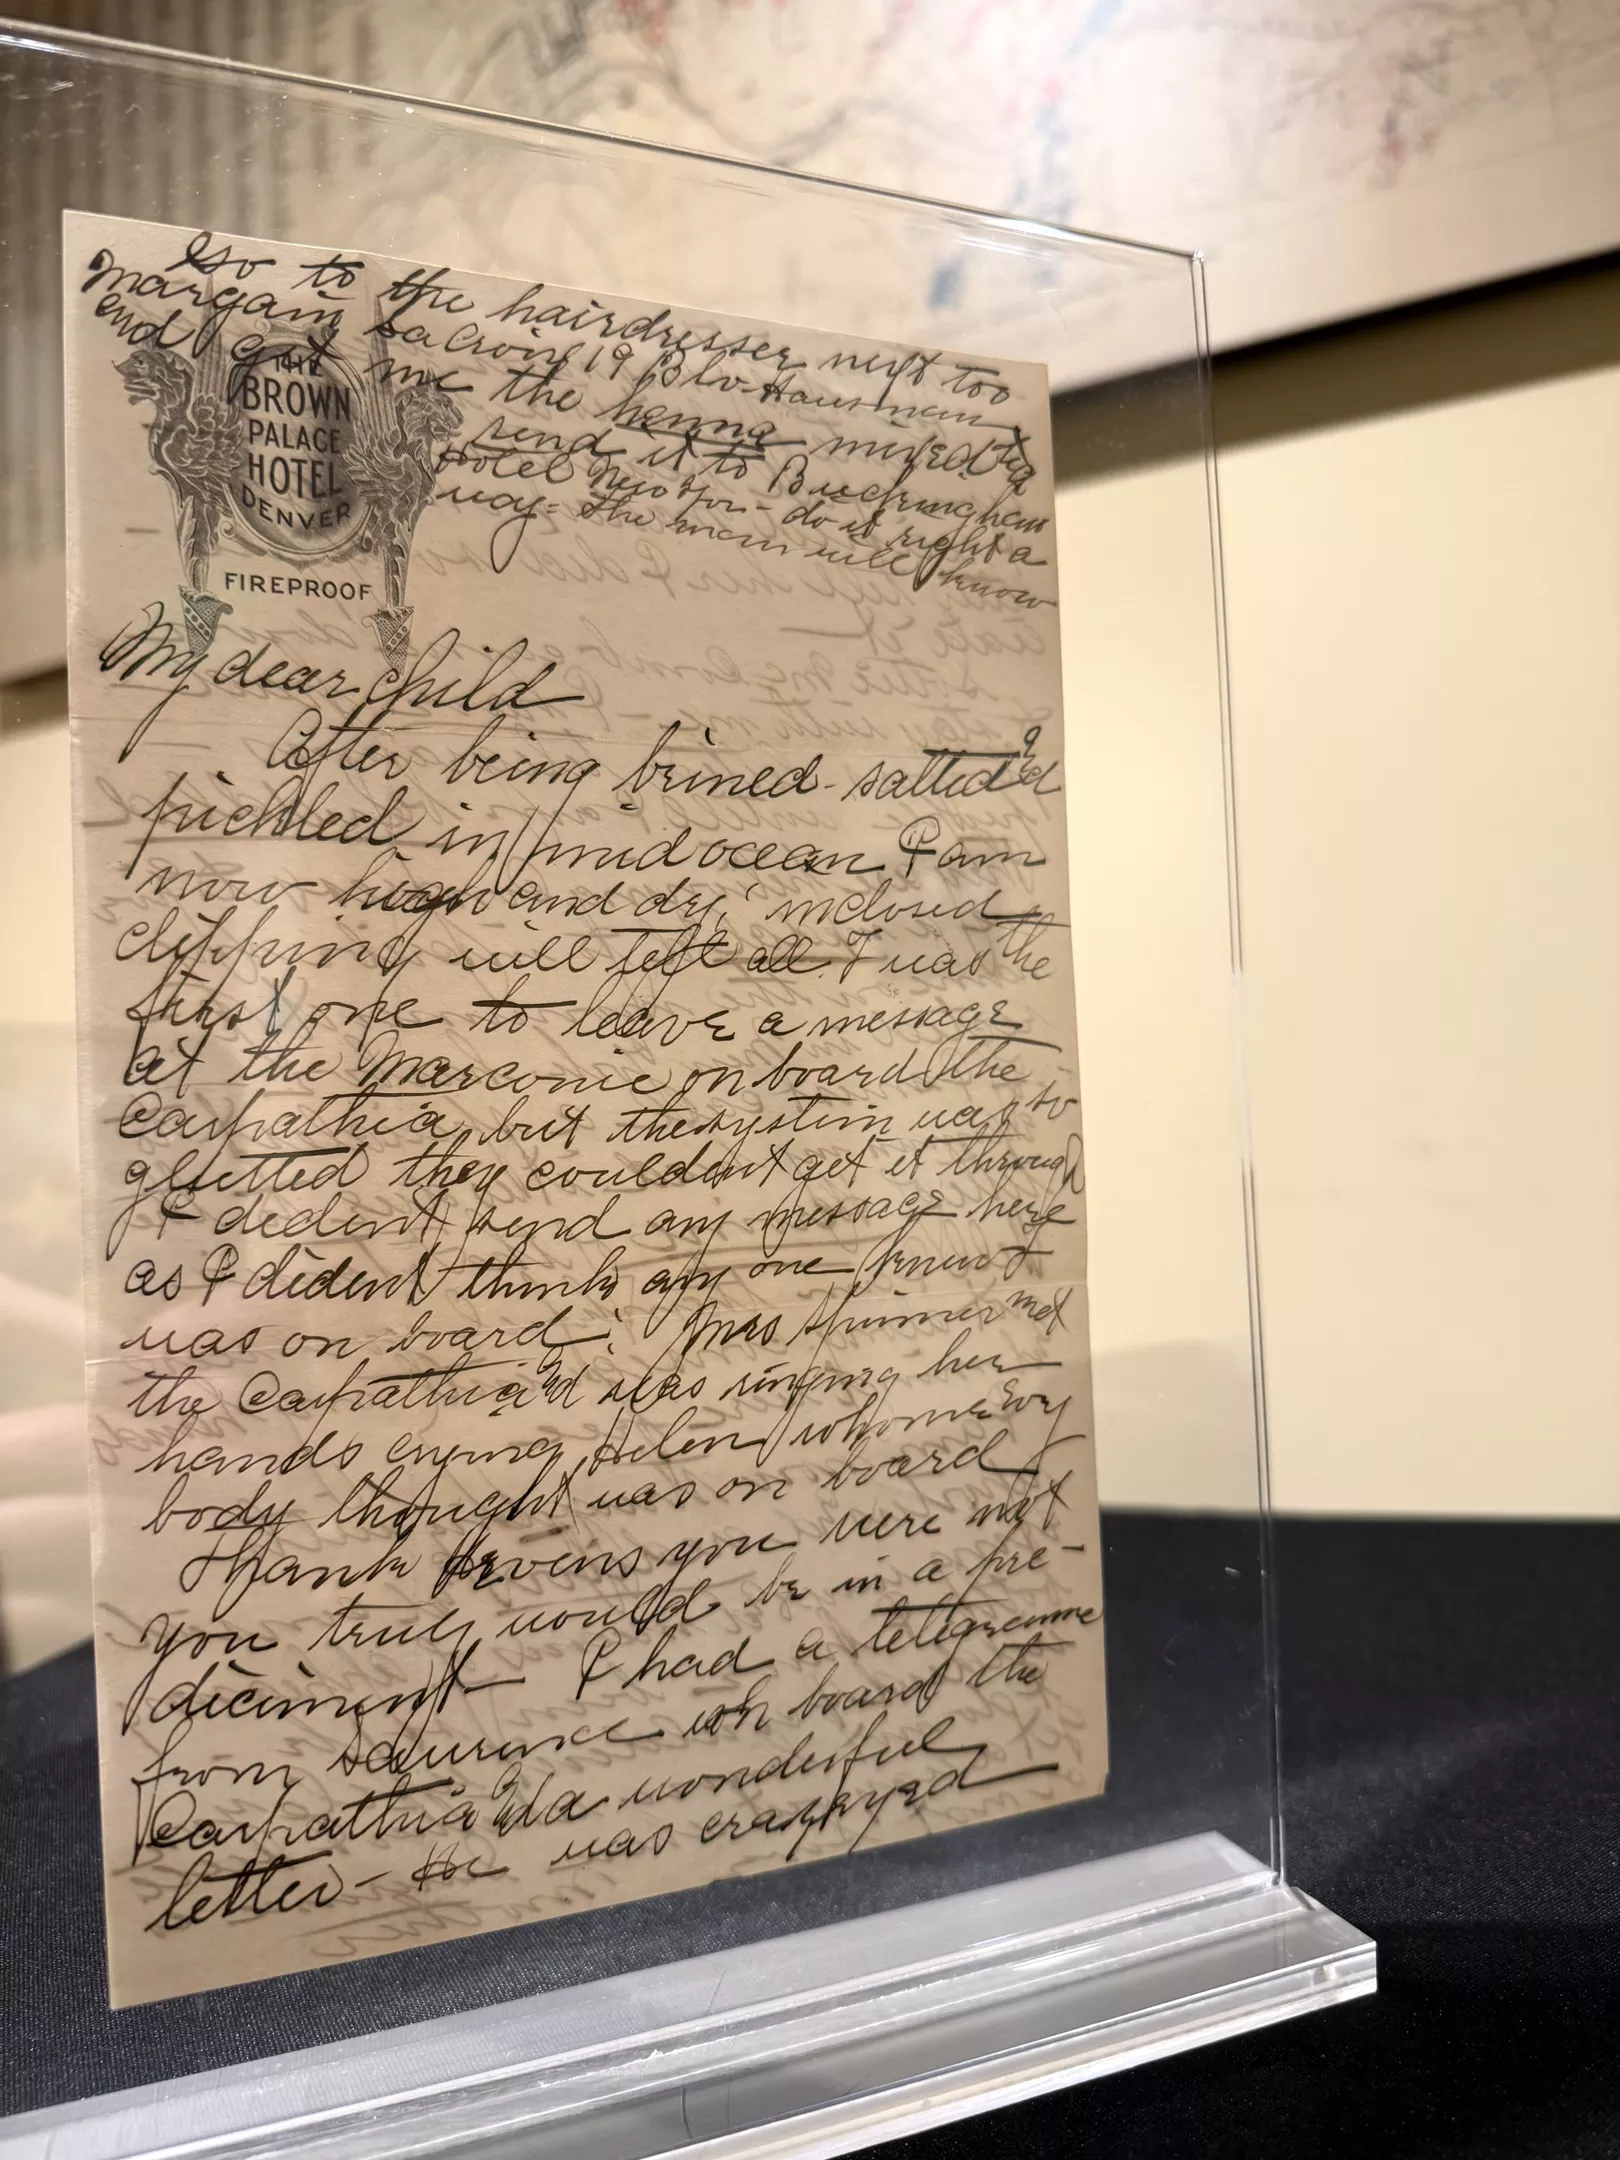 Go to the hairdresser next too
Margain La Croix 19 Blv-Hausmann
and get me the henna mixed &
send it to Buckingham
Hotel New Yor - do it right a
way - The man will know
THE
BROWN
PALACE
HOTEL
DENVER
FIREPROOF
My dear child
After being brined - salted &
pickled in mid ocean I am
now high and dry; inclosed
clipping will tell all. I was the
first one to leave a message
at the Marconie on board the
Carpathia, but the system was so
glutted they couldent get it through
I dident send any message here
as I dident think any one knew I
was on board; Mrs Spinner met
the Carpathia & was ringing her
hands crying Helen whom every
body thought was on board
Thank Hevens you were not
you truly would be in a pre-
diciment - I had a telegramme
from Laurence on board the
Carpathia & a wonderful
letter - He was crazyed